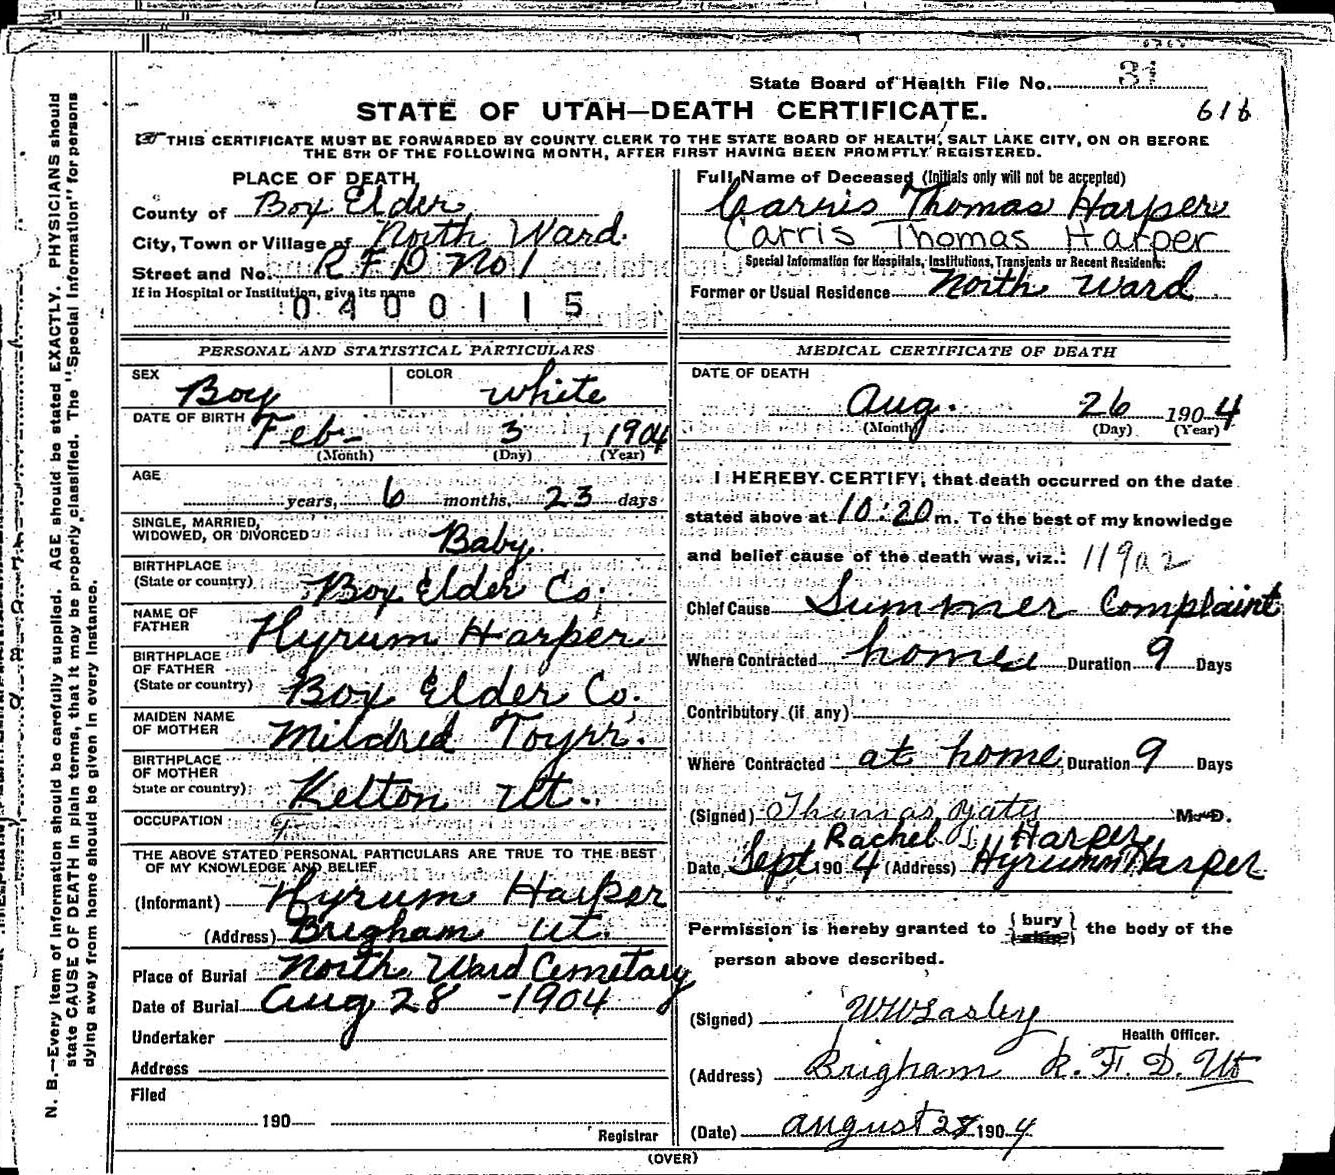 State Board of Health File No. 31
STATE OF UTAH—DEATH CERTIFICATE.
616
THIS CERTIFICATE MUST BE FORWARDED BY COUNTY CLERK TO THE STATE BOARD OF HEALTH, SALT LAKE CITY, ON OR BEFORE
THE 5TH OF THE FOLLOWING MONTH, AFTER FIRST HAVING BEEN PROMPTLY REGISTERED.
PLACE OF DEATH
County of Box Elder
City, Town or Village of North Ward.
Street and No. R F D No 1
If in Hospital or Institution, give its name
0400115
PERSONAL AND STATISTICAL PARTICULARS
SEX Boy COLOR white
DATE OF BIRTH Feb- 3, 1904
(Month) (Day) (Year)
AGE
years, 6 months, 23 days
SINGLE, MARRIED,
WIDOWED, OR DIVORCED Baby.
BIRTHPLACE
(State or country) Box Elder Co.
NAME OF
FATHER Hyrum Harper
BIRTHPLACE
OF FATHER
(State or country) Box Elder Co.
MAIDEN NAME
OF MOTHER Mildred
BIRTHPLACE
OF MOTHER
State or country) Kelton Ut.
OCCUPATION
THE ABOVE STATED PERSONAL PARTICULARS ARE TRUE TO THE BEST
OF MY KNOWLEDGE AND BELIEF
(Informant) Hyrum Harper
(Address) Brigham Ut.
Place of Burial North Ward Cemetary
Date of Burial Aug 28 -1904
Undertaker
Address
Filed
190
Registrar
Full Name of Deceased (Initials only will not be accepted)
Carris Thomas Harper
Carris Thomas Harper
Special Information for Hospitals, Institutions, Transients or Recent Residents:
Former or Usual Residence North Ward
MEDICAL CERTIFICATE OF DEATH
DATE OF DEATH
Aug. 26 1904
(Month) (Day) (Year)
I HEREBY CERTIFY, that death occurred on the date
stated above at 10:20 m. To the best of my knowledge
and belief cause of the death was, viz.: 119a2
Chief Cause Summer Complaint
Where Contracted home Duration 9 Days
Contributory (if any)
Where Contracted at home Duration 9 Days
(Signed) Thomas Yates M. D.
Rachel Harper
Date, Sept 1904 (Address) Hyrum Harper
Permission is hereby granted to bury the body of the
person above described.
(Signed)
Health Officer.
(Address) Brigham R. F. D. Ut
(Date) august 28 1904
(OVER)
N. B.—Every item of information should be carefully supplied. AGE should be stated EXACTLY. PHYSICIANS should
state CAUSE OF DEATH in plain terms, that it may be properly classified. The "Special Information" for persons
dying away from home should be given in every instance.